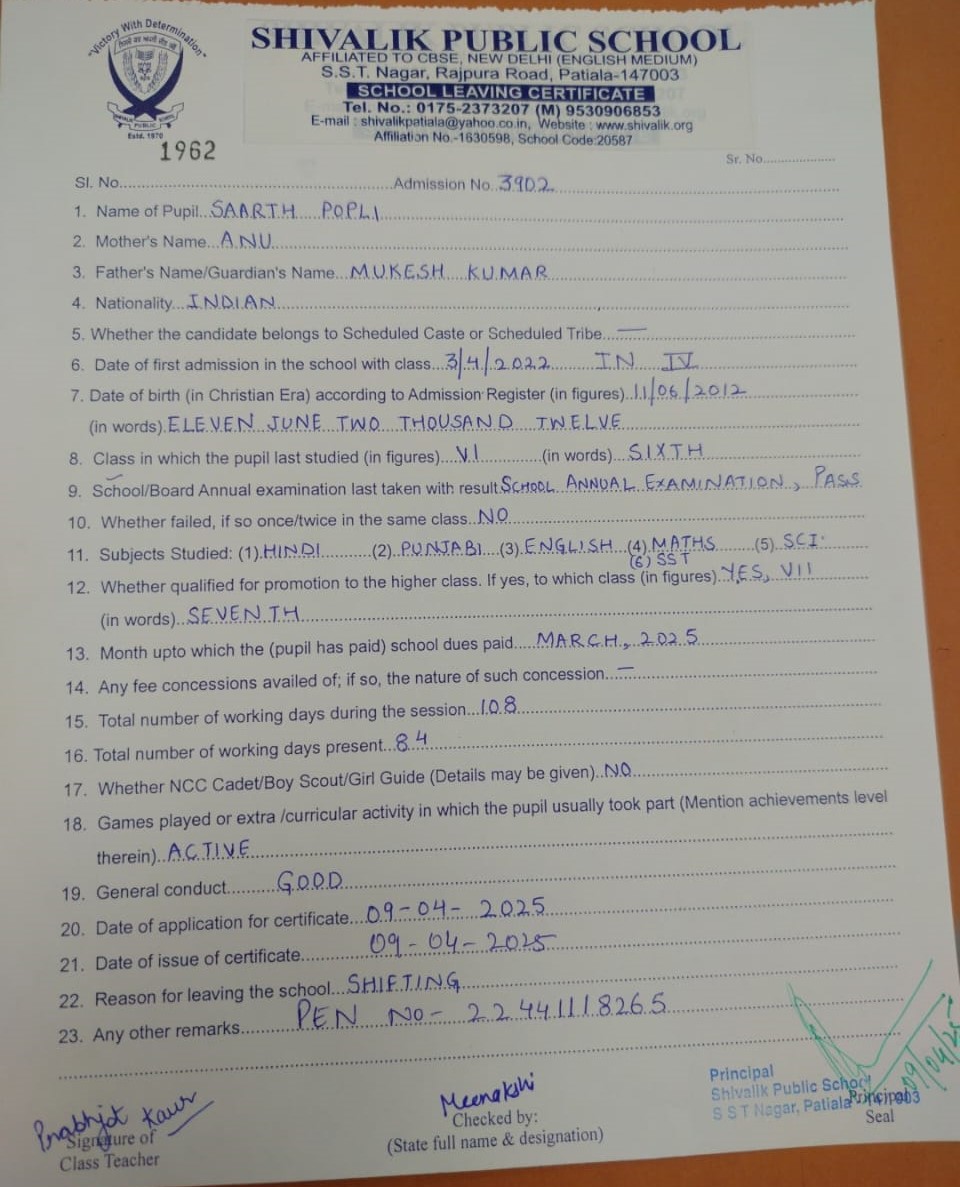 "Victory With Determination"
SHIVALIK PUBLIC SCHOOL
AFFILIATED TO CBSE, NEW DELHI (ENGLISH MEDIUM)
S.S.T. Nagar, Rajpura Road, Patiala-147003
SCHOOL LEAVING CERTIFICATE
Tel. No.: 0175-2373207 (M) 9530906853
E-mail : shivalikpatiala@yahoo.co.in, Website : www.shivalik.org
Affiliation No.-1630598, School Code:20587
SHIVALIK PUBLIC SCHOOL
Estd. 1970
1962
Sr. No.
Sl. No. Admission No. 3902
1. Name of Pupil SAARTH POPLI
2. Mother's Name ANU
3. Father's Name/Guardian's Name MUKESH KUMAR
4. Nationality INDIAN
5. Whether the candidate belongs to Scheduled Caste or Scheduled Tribe —
6. Date of first admission in the school with class 3/4/2022 IN IV
7. Date of birth (in Christian Era) according to Admission Register (in figures) 11/06/2012
(in words) ELEVEN JUNE TWO THOUSAND TWELVE
8. Class in which the pupil last studied (in figures) VI (in words) SIXTH
9. School/Board Annual examination last taken with result SCHOOL ANNUAL EXAMINATION, PASS
10. Whether failed, if so once/twice in the same class NO
11. Subjects Studied: (1) HINDI (2) PUNJABI (3) ENGLISH (4) MATHS (5) SCI.
(6) SST
12. Whether qualified for promotion to the higher class. If yes, to which class (in figures) YES, VII
(in words) SEVENTH
13. Month upto which the (pupil has paid) school dues paid MARCH, 2025
14. Any fee concessions availed of; if so, the nature of such concession —
15. Total number of working days during the session 108
16. Total number of working days present 84
17. Whether NCC Cadet/Boy Scout/Girl Guide (Details may be given) NO
18. Games played or extra /curricular activity in which the pupil usually took part (Mention achievements level
therein) ACTIVE
19. General conduct GOOD
20. Date of application for certificate 09-04-2025
21. Date of issue of certificate 09-04-2025
22. Reason for leaving the school SHIFTING
23. Any other remarks PEN NO- 22441118265
Prabhjot Kaur
Signature of
Class Teacher
Meenakshi
Checked by:
(State full name & designation)
Principal
Shivalik Public School
S S T Nagar, Patiala-147003
09/04/25
Principal
Seal